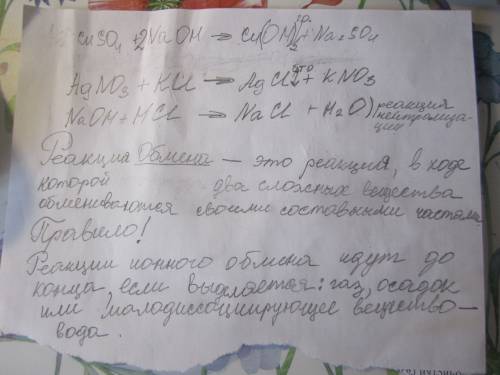 CuSO4 + 2NaOH → Cu(OH)2↓ + Na2SO4
AgNO3 + KCl → AgCl↓ + KNO3
NaOH + HCl → NaCl + H2O) реакция
нейтрализа-
ции
Реакция обмена – это реакция, в ходе
которой два сложных вещества
обмениваются своими составными частями.
Правило!
Реакции ионного обмена идут до
конца, если выделяется: газ, осадок
или малодиссоциирующее вещество –
вода.